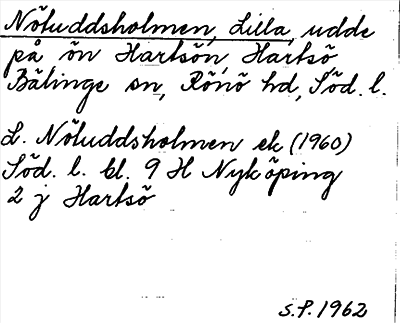 Nötuddsholmen, Lilla, udde
på ön Hartsön, Hartsö,
Bälinge sn, Rönö hd, Söd. l.
L. Nötuddsholmen ek (1960)
Söd. l. bl. 9 H Nyköping
2 j Hartsö
S.P. 1962